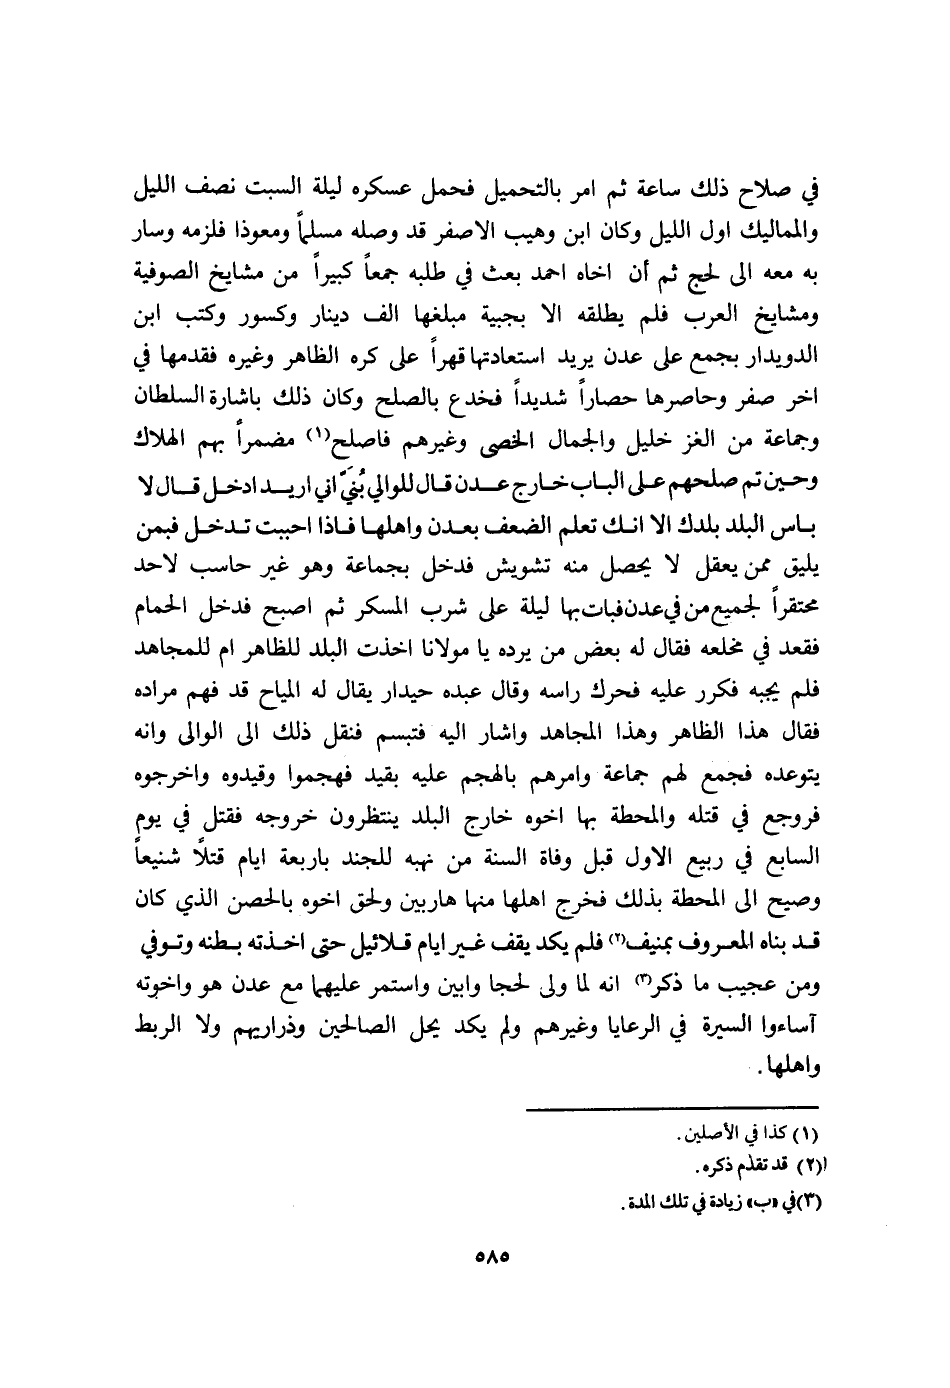 في صلاح ذلك ساعة ثم امر بالتحميل فحمل عسكره ليلة السبت نصف الليل
والماليك اول الليل وكان ابن وهيب الاصفر قد وصله مسلماً ومعوذا فلزمه وسار
به معه الى لحج ثم أن اخاه احمد بعث في طلبه جمعاً كبيراً من مشايخ الصوفية
ومشايخ العرب فلم يطلقه الا بجبية مبلغها الف دينار وكسور وكتب ابن
الدويدار بجمع على عدن يريد استعادتها قهراً على كره الظاهر وغيره فقدمها في
اخر صفر وحاصرها حصاراً شديداً فخدع بالصلح وكان ذلك باشارة السلطان
وجماعة من الغز خليل والجمال الخصى وغيرهم فاصلح(١) مضمراً بهم الهلاك
وحين تم صلحهم على الباب خارج عدن قال للوالي بُنَيَّ اني اريد ادخل قال لا
باس البلد بلدك الا انك تعلم الضعف بعدن واهلها فاذا احببت تدخل فبمن
يليق ممن يعقل لا يحصل منه تشويش فدخل بجماعة وهو غير حاسب لاحد
محتقراً لجميع من في عدن فبات بها ليلة على شرب المسكر ثم اصبح فدخل الحمام
فقعد في مخلعه فقال له بعض من يرده يا مولانا اخذت البلد للظاهر ام للمجاهد
فلم يجبه فكرر عليه فحرك راسه وقال عبده حيدار يقال له المياح قد فهم مراده
فقال هذا الظاهر وهذا المجاهد واشار اليه فتبسم فنقل ذلك الى الوالى وانه
يتوعده فجمع لهم جماعة وامرهم بالهجم عليه بقيد فهجموا وقيدوه واخرجوه
فروجع في قتله والمحطة بها اخوه خارج البلد ينتظرون خروجه فقتل في يوم
السابع في ربيع الاول قبل وفاة السنة من نهبه للجند باربعة ايام قتلاً شنيعاً
وصيح الى المحطة بذلك فخرج اهلها منها هاربين ولحق اخوه بالحصن الذي كان
قد بناه المعروف بمنيف(٢) فلم يكد يقف غير ايام قلائيل حتى اخذته بطنه وتوفي
ومن عجيب ما ذكر(٣) انه لما ولى لحجا وابين واستمر عليهما مع عدن هو واخوته
آساءوا السيرة في الرعايا وغيرهم ولم يكد يحل الصالحين وذراريهم ولا الربط
واهلها.
(١) كذا في الأصلين.
(٢) قد تقدّم ذكره.
(٣) في «ب» زيادة في تلك المدة.
٥٨٥